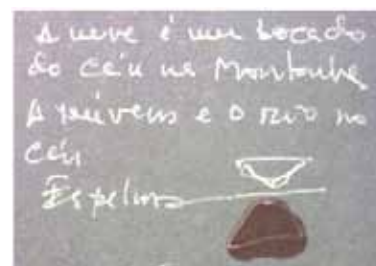 A neve é um bocado
do céu na Montanha
A nuvem é o rio no
céu
Espelho